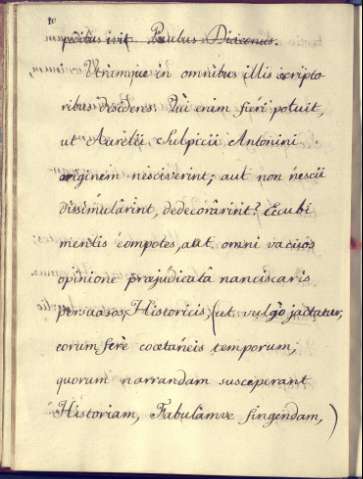 10
peribus ivit Paulus Diaconus.
Utrumque in omnibus illis scripto
ribus desideres. Qui enim fieri potuit,
ut Aurelii Sulpicii Antonini
originem nesciverint, aut non nescii
dissimularint, dedecorârint? Ecubi
mentis compotes, aut omni vacuos
opinione præjudicatâ nanciscaris
persuasos, Historicis, (ut vulgò jactatur,
eorum ferè coætaneis temporum,
quorum narrandam susceperant
Historiam, Fabulamve fingendam,)